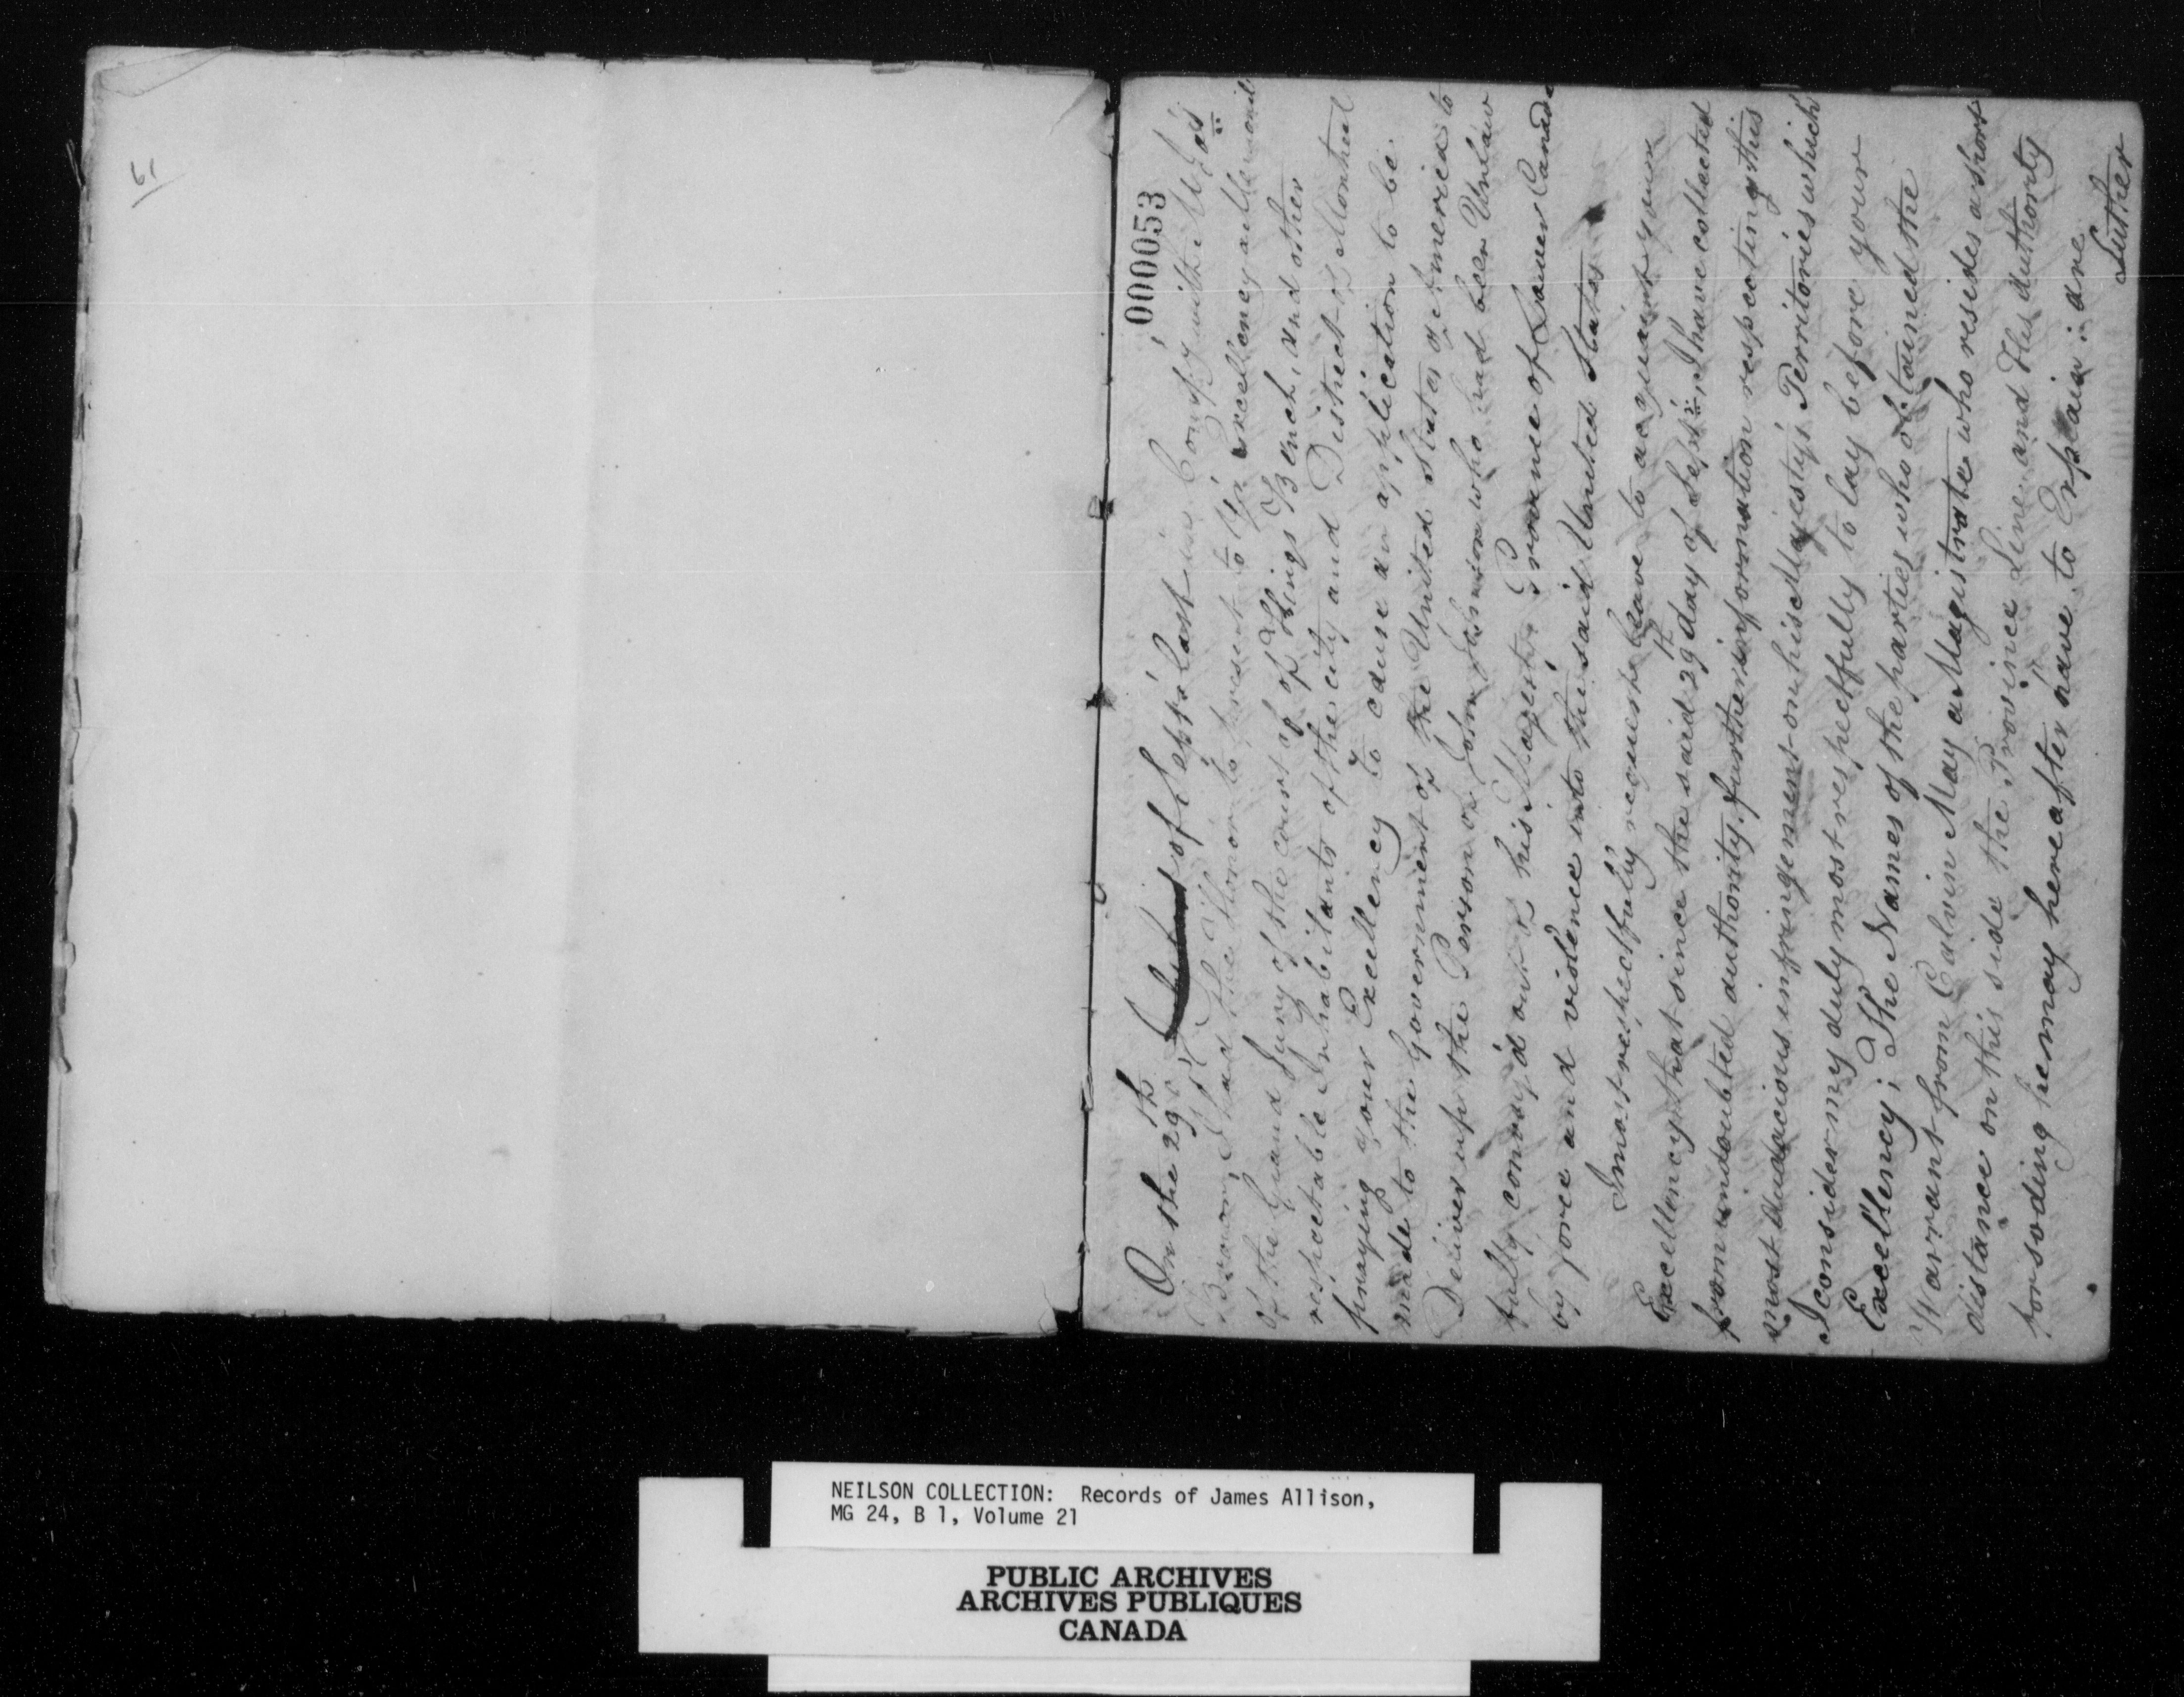 51
000053
On the 29th of Septr. last in Company with Mr. Jas
Brown, I had the Honor to present to Yr. Excellency a Memorial
of the Grand Jury of the court of Kings Bench, and other
respectable Inhabitants of the city and District of Montreal
praying your Excellency to cause an application to be
made to the Government of the United States of America to
Deliver up the Person of John Johnson who had been Unlaw
fully convey'd out of his Majesty's Province of Lower Canada
by force and violence into the said United States
I most respectfully request leave to acquaint your
Excellency that since the said 29th day of Septr. I have collected
from undoubted authority further information respecting this
most audacious infringement on his Majesty's Territories which
I consider my duty most respectfully to lay before your
Excellency; The Names of the parties who obtained the
Warrant from Calvin May a Magistrate who resides a short
distance on this side the Province Line and His authority
for so doing he may hereafter have to Explain: are
Luther
NEILSON COLLECTION: Records of James Allison,
MG 24, B 1, Volume 21
PUBLIC ARCHIVES
ARCHIVES PUBLIQUES
CANADA